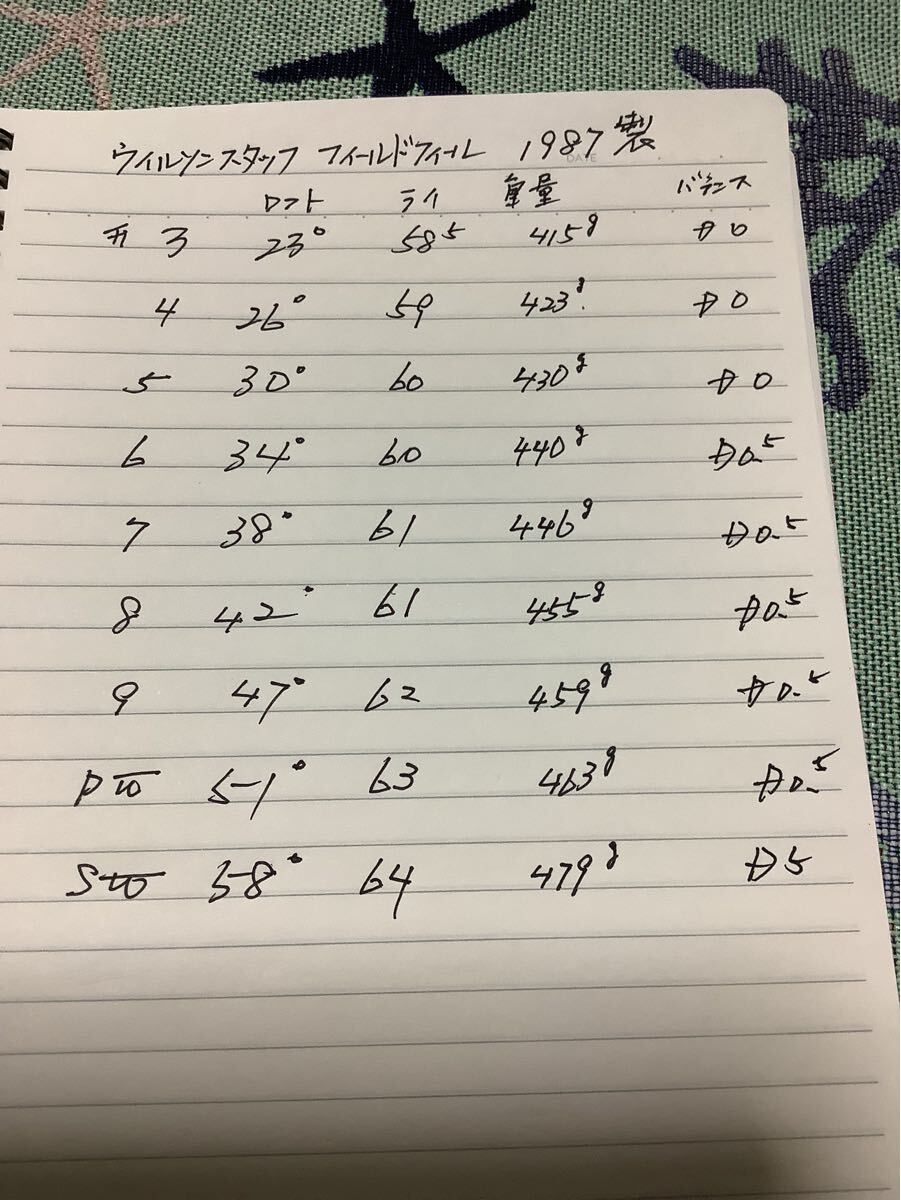 ウイルソンスタッフ フィールドフィール 1987製
DATE
ロフト ライ 重量 バランス
#3 23° 58.5 415g D0
4 26° 59 423g. D0
5 30° 60 430g D0
6 34° 60 440g D0.5
7 38° 61 446g D0.5
8 42° 61 455g D0.5
9 47° 62 459g D0.5
PW 51° 63 463g D0.5
SW 58° 64 479g D5